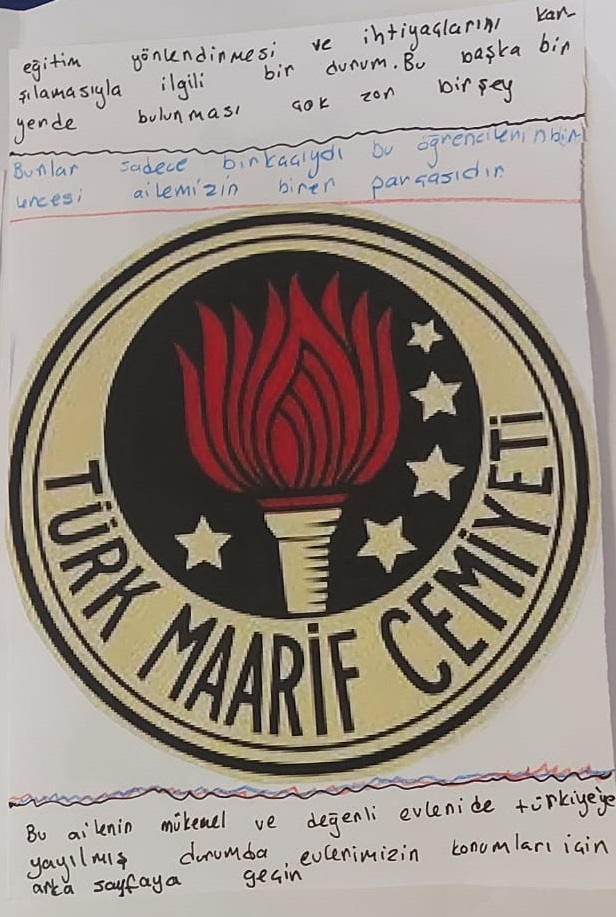 eğitim yönlendirmesi ve ihtiyaçlarını kar-
şılamasıyla ilgili bir durum. Bu başka bir
yerde bulunması çok zor birşey
Bunlar sadece birkaçıydı bu öğrencilerin bir
incesi ailemizin birer parçasıdır
TÜRK MAARİF CEMİYETİ
Bu ailenin mükemel ve değerli evleride türkiyeye
yayılmış durumda evlerimizin konumları için
arka sayfaya geçin